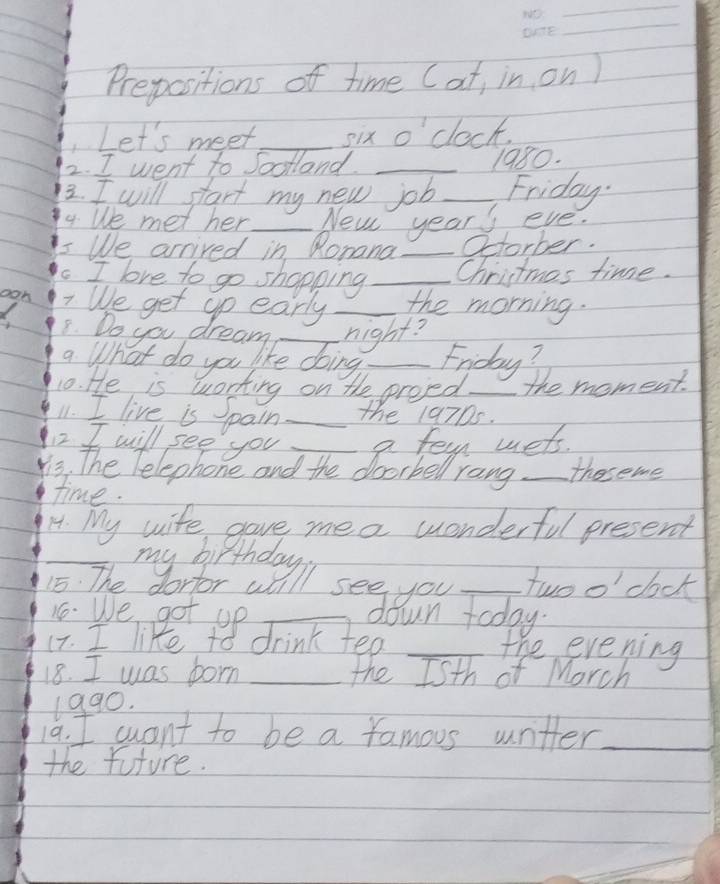 NO:
DATE
Prepositions of time (at, in, on)
1. Let's meet ____ six o'clock.
2. I went to Scotland. ____ 1980.
3. I will start my new job ____ Friday.
4. We met her ____ New year's eve.
5 We arrived in Ropana ____ Octorber.
6 I love to go shopping ____ Christmas time.
oon
7 We get up early ____ the morning.
8. Do you dream ____ night?
9. What do you like doing ____ Friday?
10. He is worting on the projed ____ the moment.
11. I live is Spain ____ the 1970s.
12 I will see you ____ a few wets.
13. The Telephone and the doorbell rang ____ theseme
time.
14. My wife gave me a wonderful present
____ my birthday.
15. The dortor will see you ____ two o'clock
16. We got up ____ down today.
17. I like to drink tea ____ the evening
18. I was born ____ the 15th of March
1990.
19. I want to be a famous writter ____
the future.